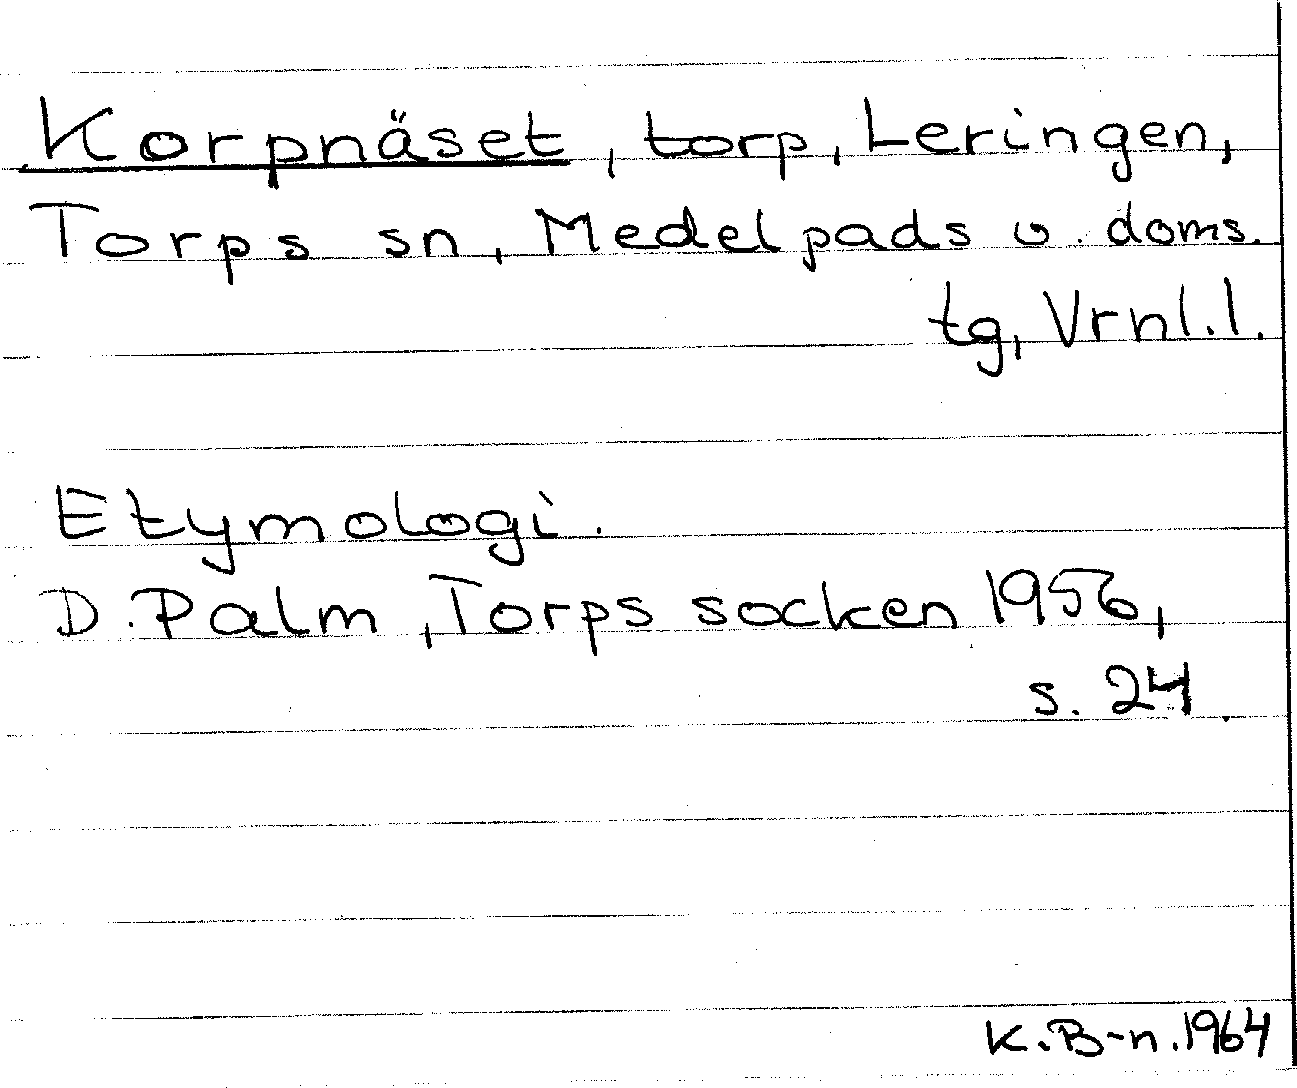 Korpnäset, torp, Leringen,
Torps sn, Medelpads v. doms.
tg, Vrnl.l.
Etymologi.
D. Palm, Torps socken 1956,
s. 24.
K.B-n. 1964